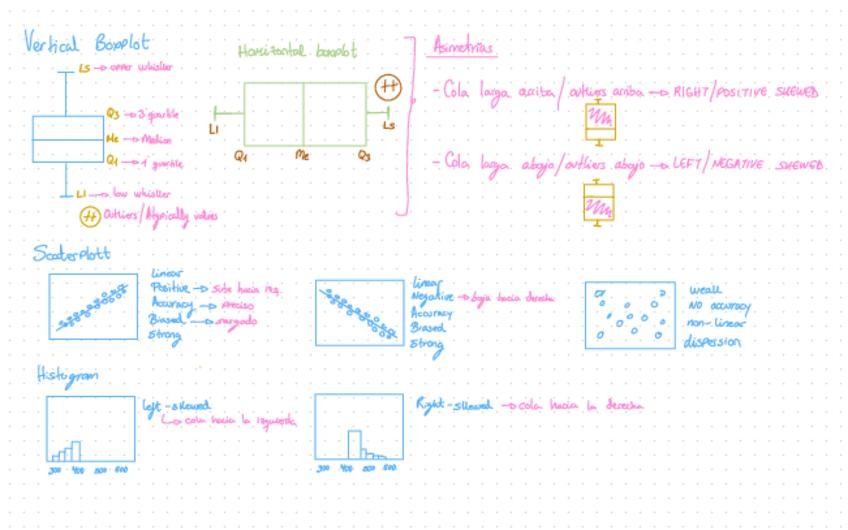 Vertical Boxplot
LS → upper whisller
Q3 → 3º quartile
Me → Median
Q1 → 1º quartile
LI → low whisller
Outliers/Atypically values
Horizontal boxplot
LI
LS
Q1 Me Q3
Asimetrías
- Cola larga arriba/outliers arriba → RIGHT/POSITIVE SKEWED
- Cola larga abajo/outliers abajo → LEFT/NEGATIVE SKEWED
Scaterplott
linear
Positive → sube hacia
Accuracy → preciso
Biased → sesgado
Strong
linear
Negative → baja hacia derecha
Accuracy
Biased
Strong
weak
NO accuracy
non-linear
dispersion
Histogram
left-skewed
↳ cola hacia la izquierda
300 400 500 600
Right-skewed → cola hacia la derecha
300 400 500 600